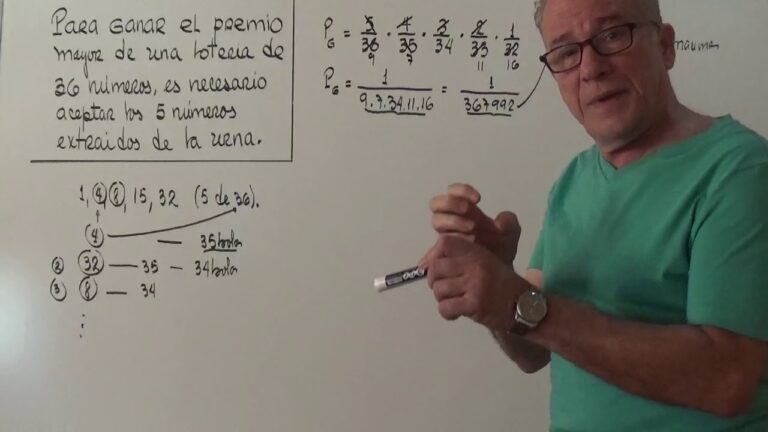 PARA GANAR EL PREMIO
mayor de una lotería de
36 números, es necesario
aceptar los 5 números
extraidos de la urna.
1, 4, 8, 15, 32 (5 de 36).
4 — 35 bolas
② 32 — 35 — 34 bolas
③ 8 — 34
⋮
P_G = 5/36 · 4/35 · 3/34 · 2/33 · 1/32
9 7 11 16
P_G = 1/9.7.34.11.16 = 1/367992